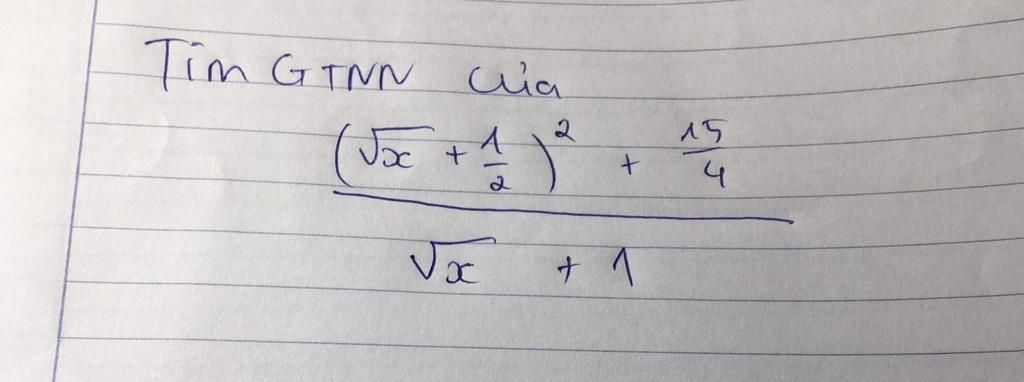 Tìm GTNN của
(√x + 1/2)² + 15/4
√x + 1